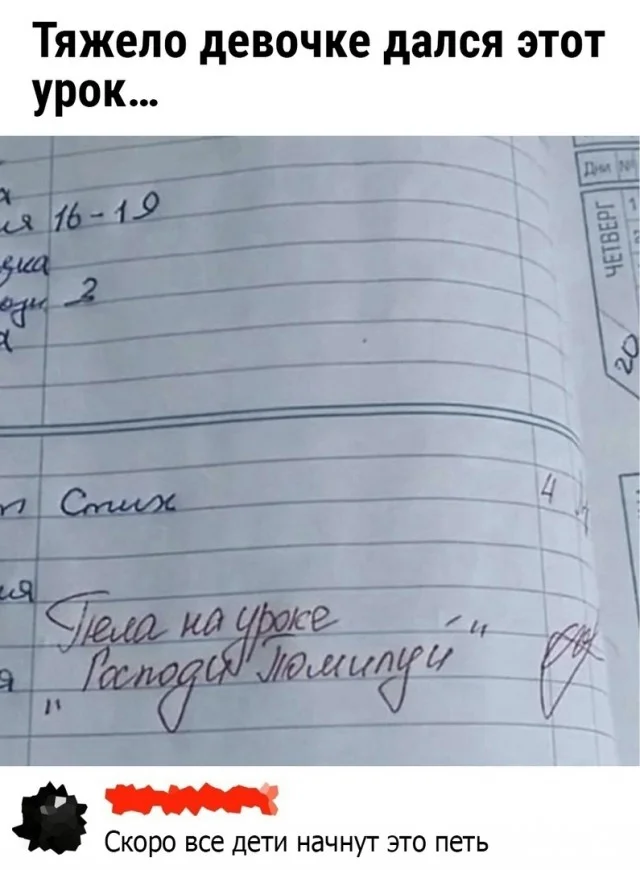 Тяжело девочке дался этот
урок...
Дни
16-19
ЧЕТВЕРГ
2
20
Стих 4
Пела на уроке
"Господи Помилуй"
Скоро все дети начнут это петь